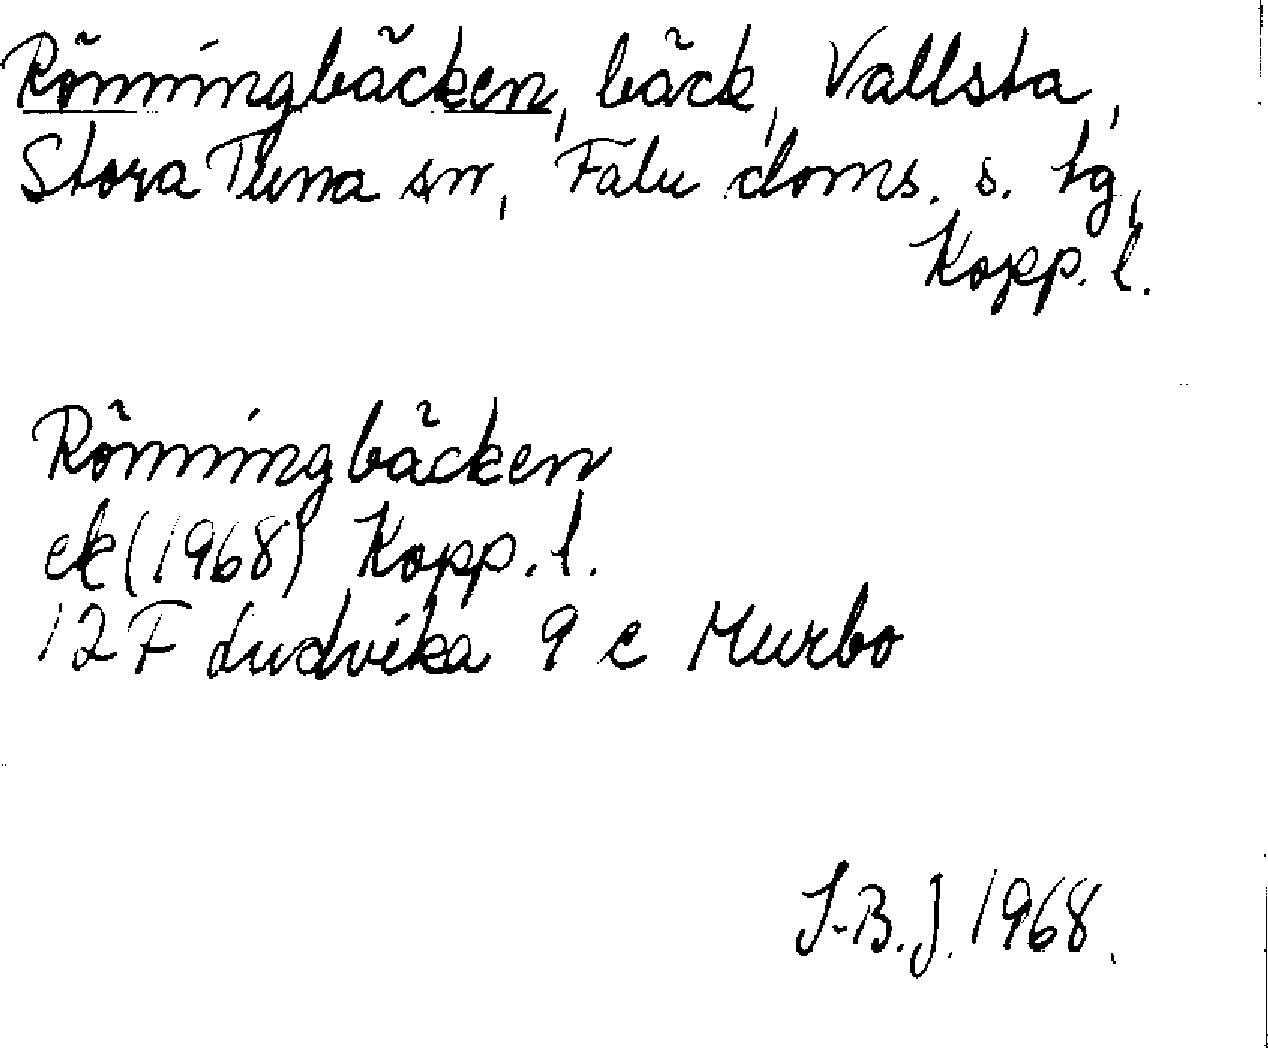 Rönningbäcken, bäck, Vallsta,
Stora Tuna sn, Falu doms. s. tg,
Kopp. l.
Rönningbäcken
ek (1968) Kopp. l.
12 F Ludvika 9 c Murbo
I-B. J. 1968.